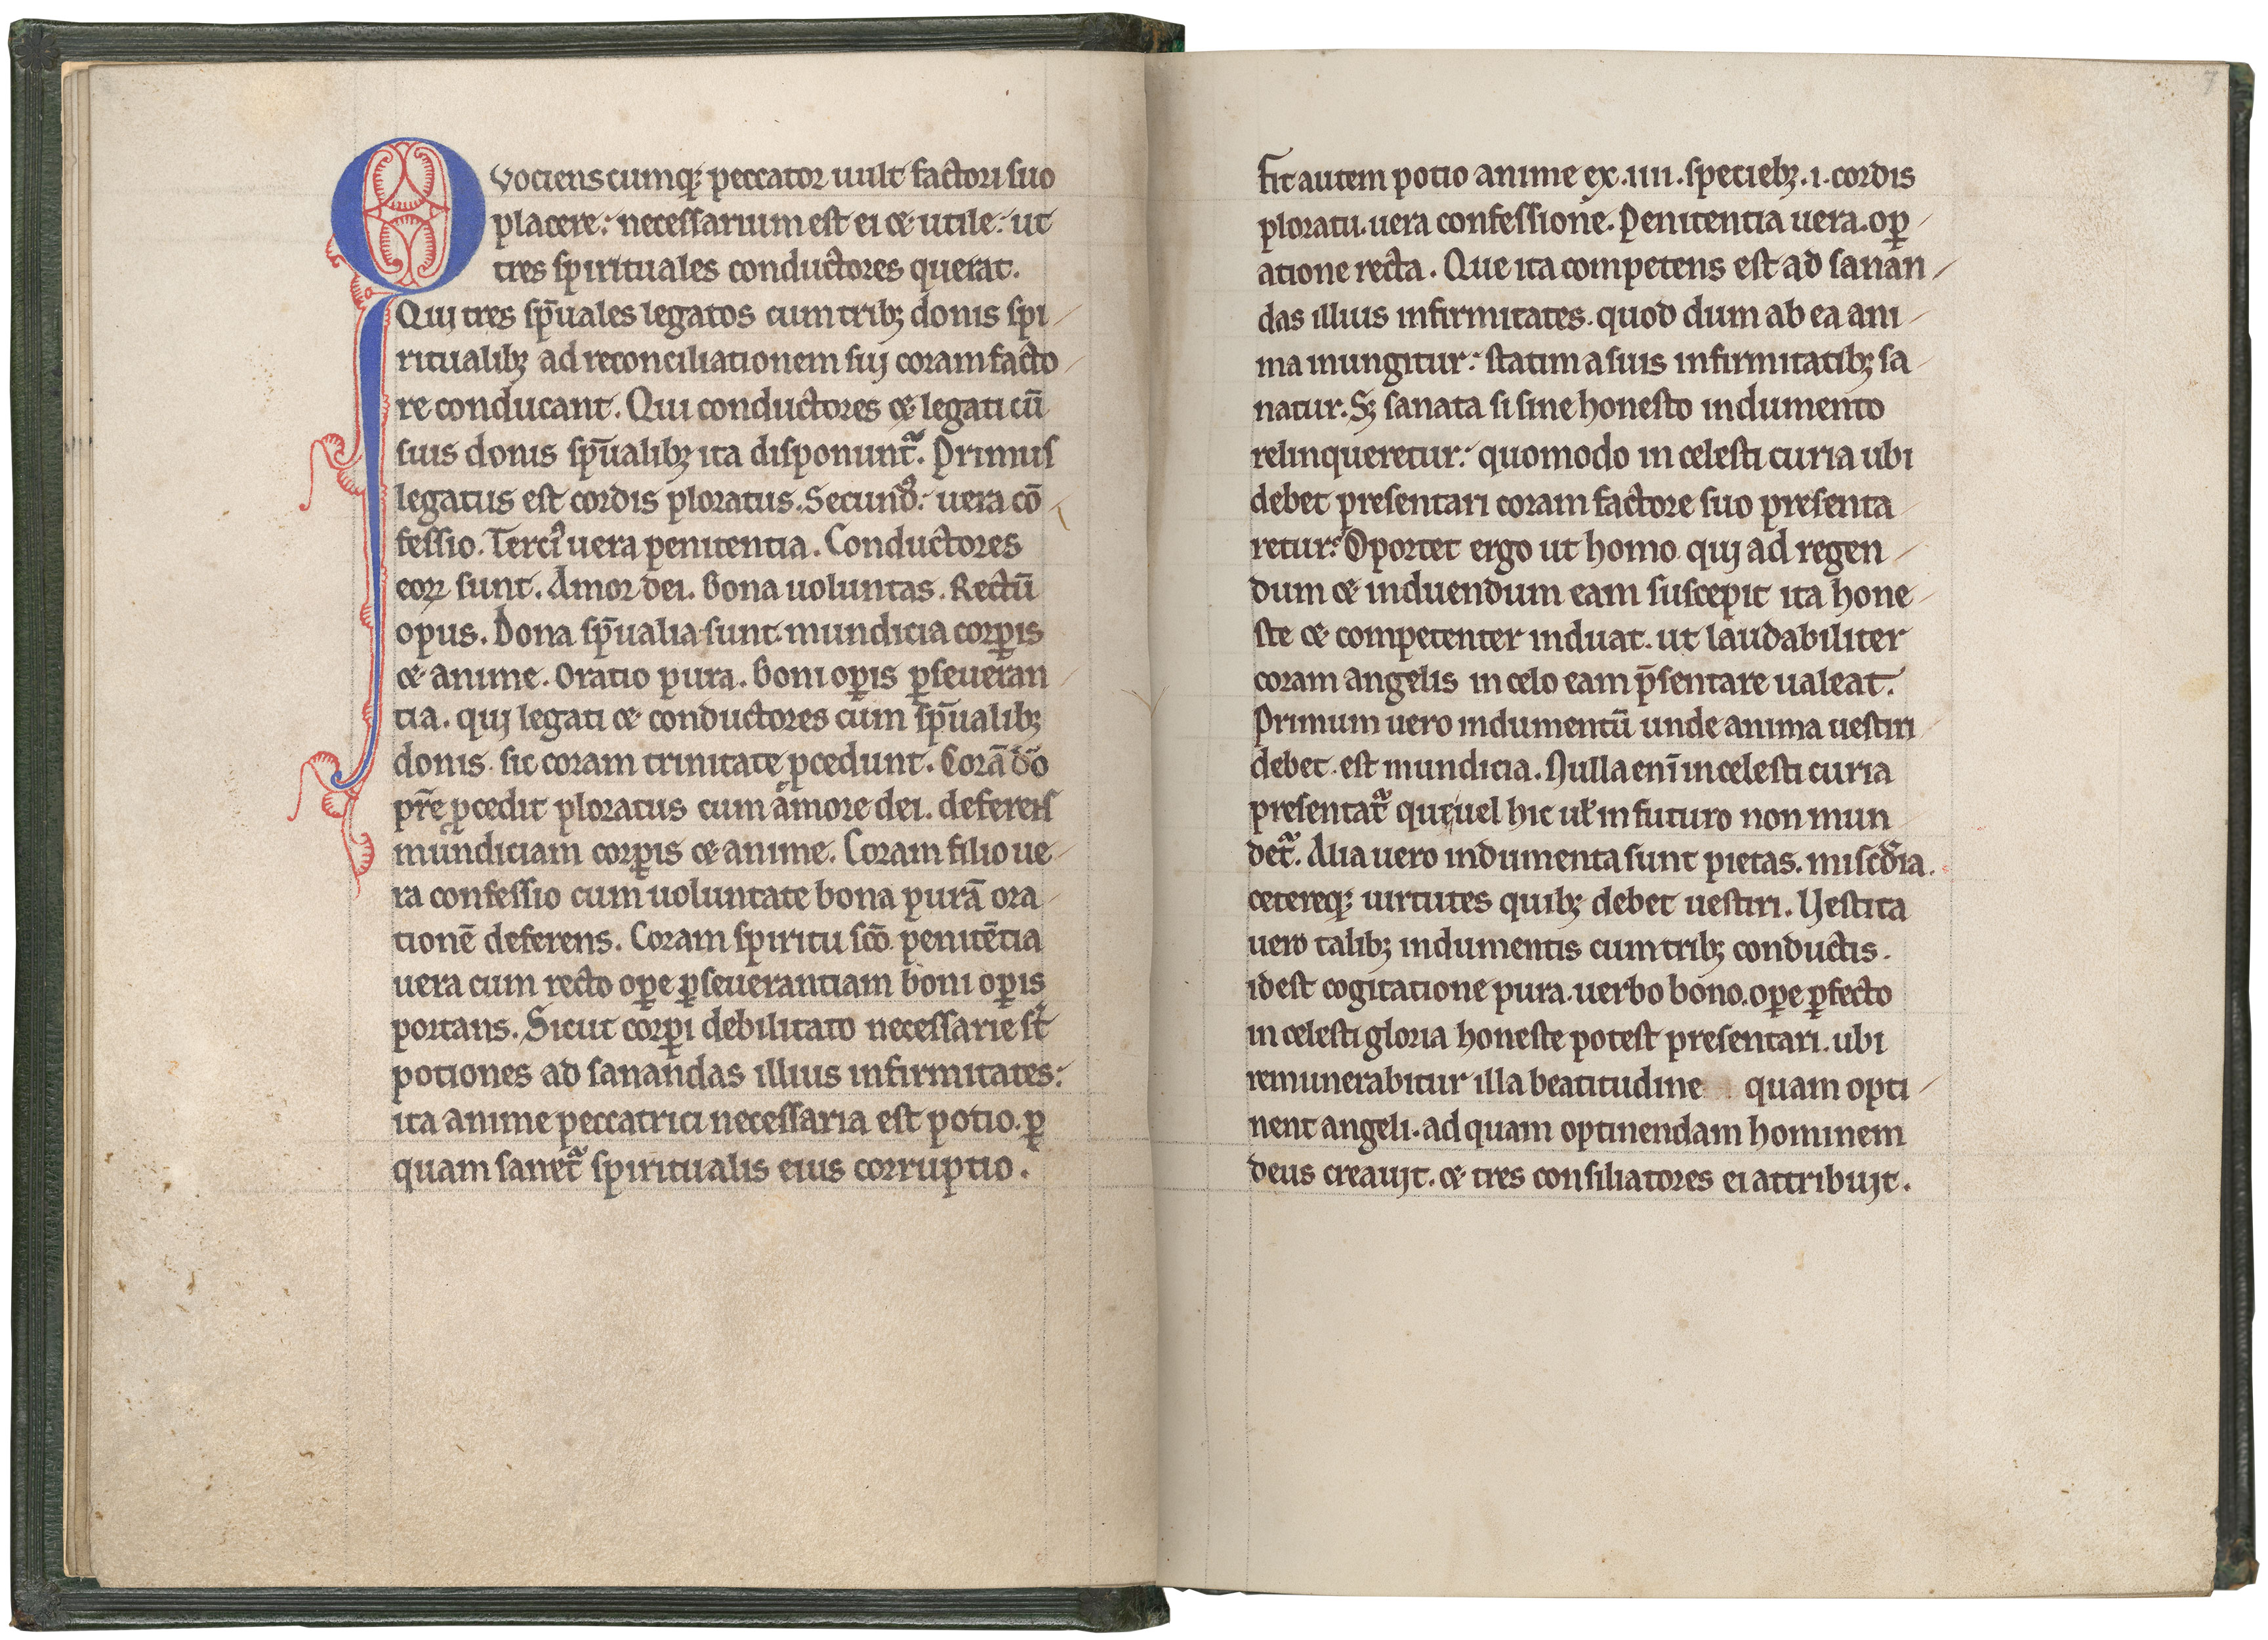 Qvocienscumq; peccator uult factori suo
placere: necessarium est ei ⁊ utile: ut
tres spirituales conductores querat.
Qui tres sp̄uales legatos cum trib; donis spi/
ritualib; ad reconciliationem sui coram facto/
re conducant. Qui conductores ⁊ legati cū
suis donis sp̄ualib; ita disponunt᷑. Primus
legatus est cordis ploratus. Secundꝰ: uera cō/
fessio. Terciꝰ uera penitentia. Conductores
eoꝝ sunt. Amor dei. bona uoluntas. Rectū
opus. Dona sp̄ualia sunt mundicia corꝑis
⁊ anime. Oratio pura. boni oꝑis ꝑseueran/
tia. qui legati ⁊ conductores cum sp̄ualib;
donis sic coram trinitatę ꝓcedunt. Corā dō
pr̄e ꝓcedit ploratus cum amore dei. deferens
mundiciam corꝑis ⁊ anime. Coram filio ue/
ra confessio cum uoluntate bona purā ora/
tionē deferens. Coram spiritu scō penitētia
uera cum recto oꝑe ꝑseuerantiam boni oꝑis
portans. Sicut corꝑi debilitato necessarie st̄
potiones ad sanandas illius infirmitates:
ita anime peccatrici necessaria est potio. ꝑ
quam sanet᷑ spiritualis eius corruptio.
7
Fit autem potio anime ex .iiii. specieb;. i. cordis
ploratu. uera confessione. Penitentia uera. oꝑ/
atione recta. Que ita competens est ad sanan/
das illius infirmitates. quod dum ab ea ani/
ma inungitur: statim a suis infirmitatib; sa/
natur. S; sanata si sine honesto indumento
relinqueretur: quomodo in celesti curia ubi
debet presentari coram factore suo presenta/
retur: Oportet ergo ut homo qui ad regen/
dum ⁊ induendum eam suscepit ita hone/
ste ⁊ competenter induat. ut laudabiliter
coram angelis in celo eam p̄sentare ualeat.
Primum uero indumentū unde anima uestiri/
debet. est mundicia. Nulla enī in celesti curia
presentat᷑ que uel hic ul̄ in futuro non mun/
det᷑. Alia uero indumenta sunt pietas. miscd̄ia.
cetereq; uirtutes quib; debet uestiri. Vestita
uero talib; indumentis cum trib; conductis.
idest cogitatione pura. uerbo bono. oꝑe ꝑfecto
in celesti gloria honeste potest presentari. ubi
remunerabitur illa beatitudine quam opti/
nent angeli. ad quam optinendam hominem
deus creauit. ⁊ tres consiliatores ei attribuit.